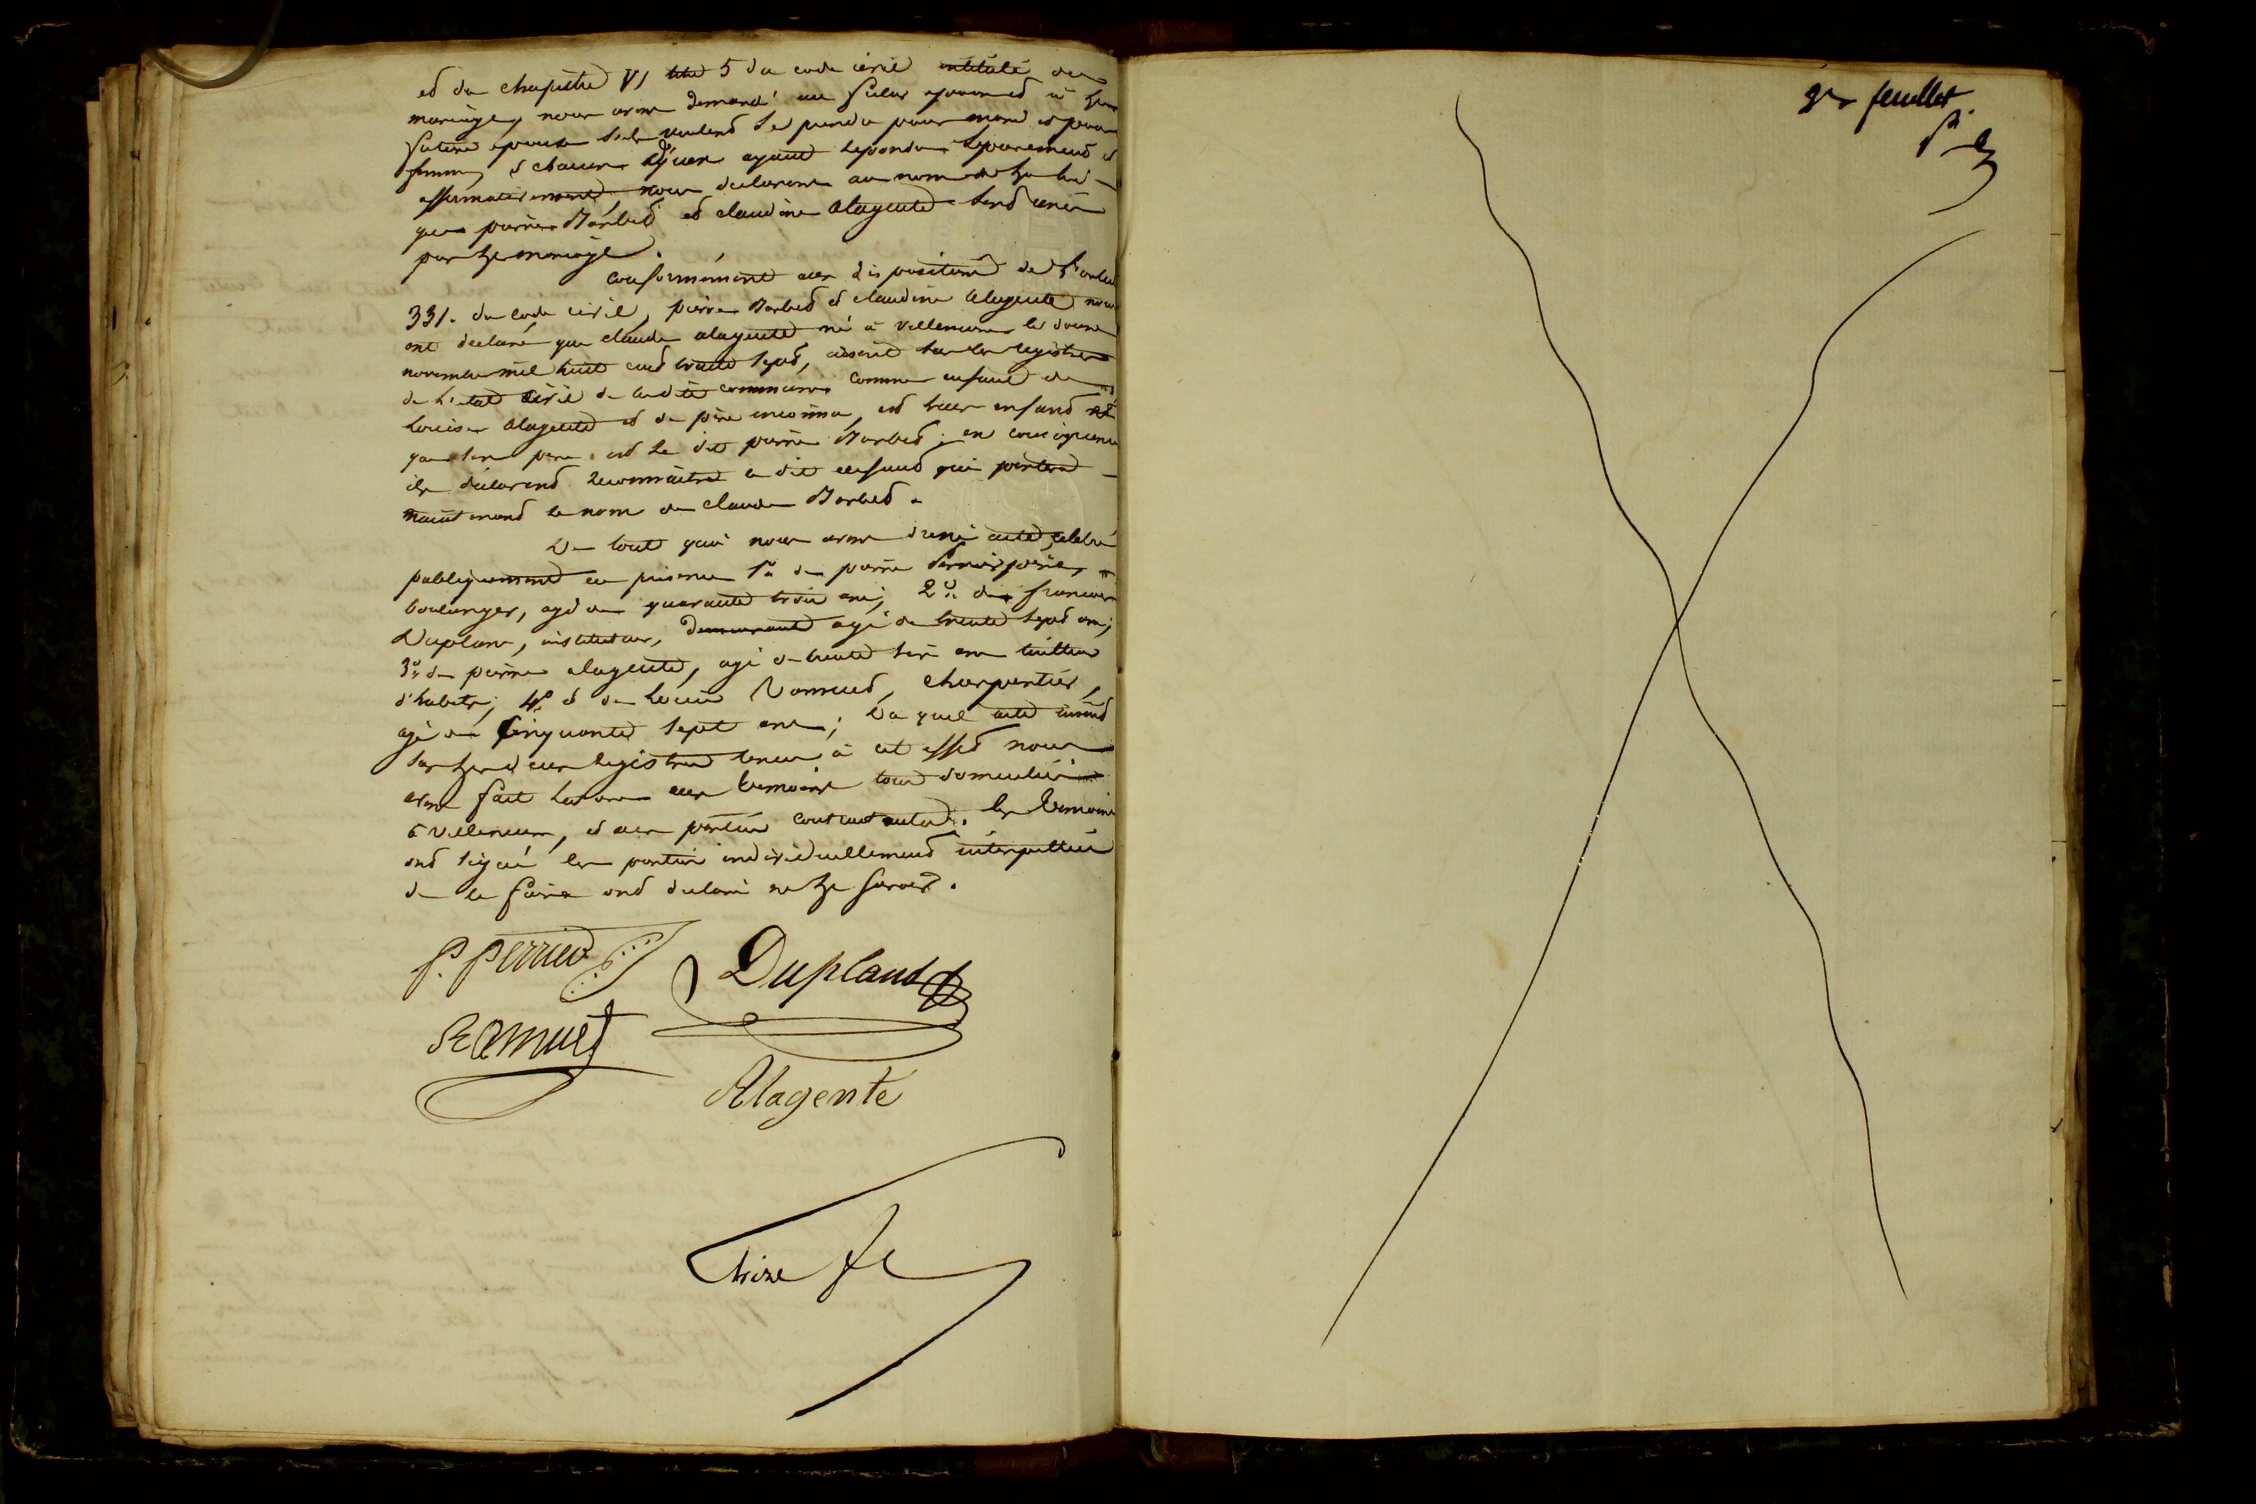 et du chapitre VI titre 5 du code civil intitulé du
mariage, nous avons demandé au futur époux et à la
future épouse s'ils veulent se prendre pour mari et pour
femme, et chacun d'eux ayant répondu séparément et
affirmativement, nous déclarons au nom de la loi
que pierre Barbet et claudine alagente sont unis
par le mariage.
Conformément aux dispositions de l'article
331. du code civil, pierre Barbet et claudine alagente nous
ont déclaré que claude alagente né à villemure le douze
novembre mil huit cent trente sept, inscrit sur les registres
de l'état civil de ladite commune comme enfant de
louise alagente et de père inconnu, est leur enfant et
que son père est le dit pierre Barbet; en conséquence
ils déclarent reconnaître le dit enfant qui portera
maintenant le nom de claude Barbet.
De tout quoi nous avons dressé acte, célébré
publiquement en présence 1º de pierre
boulanger, agé de quarante trois ans; 2º de françois
Duplan, instituteur, agé de trente sept ans;
3º de pierre alagente, agé de trente six ans tailleur
d'habits; 4º et de louis Ramuet, charpentier,
agé de cinquante sept ans; Du quel acte inscrit
sur les deux registres tenus à cet effet nous
avons fait lecture aux témoins tous domiciliés
à villemure, et aux parties contractantes. les témoins
ont signé les parties individuellement interpellées
de le faire ont déclaré ne le savoir.
P. perrier Dupland
Ramuet
Alagente
feuillet